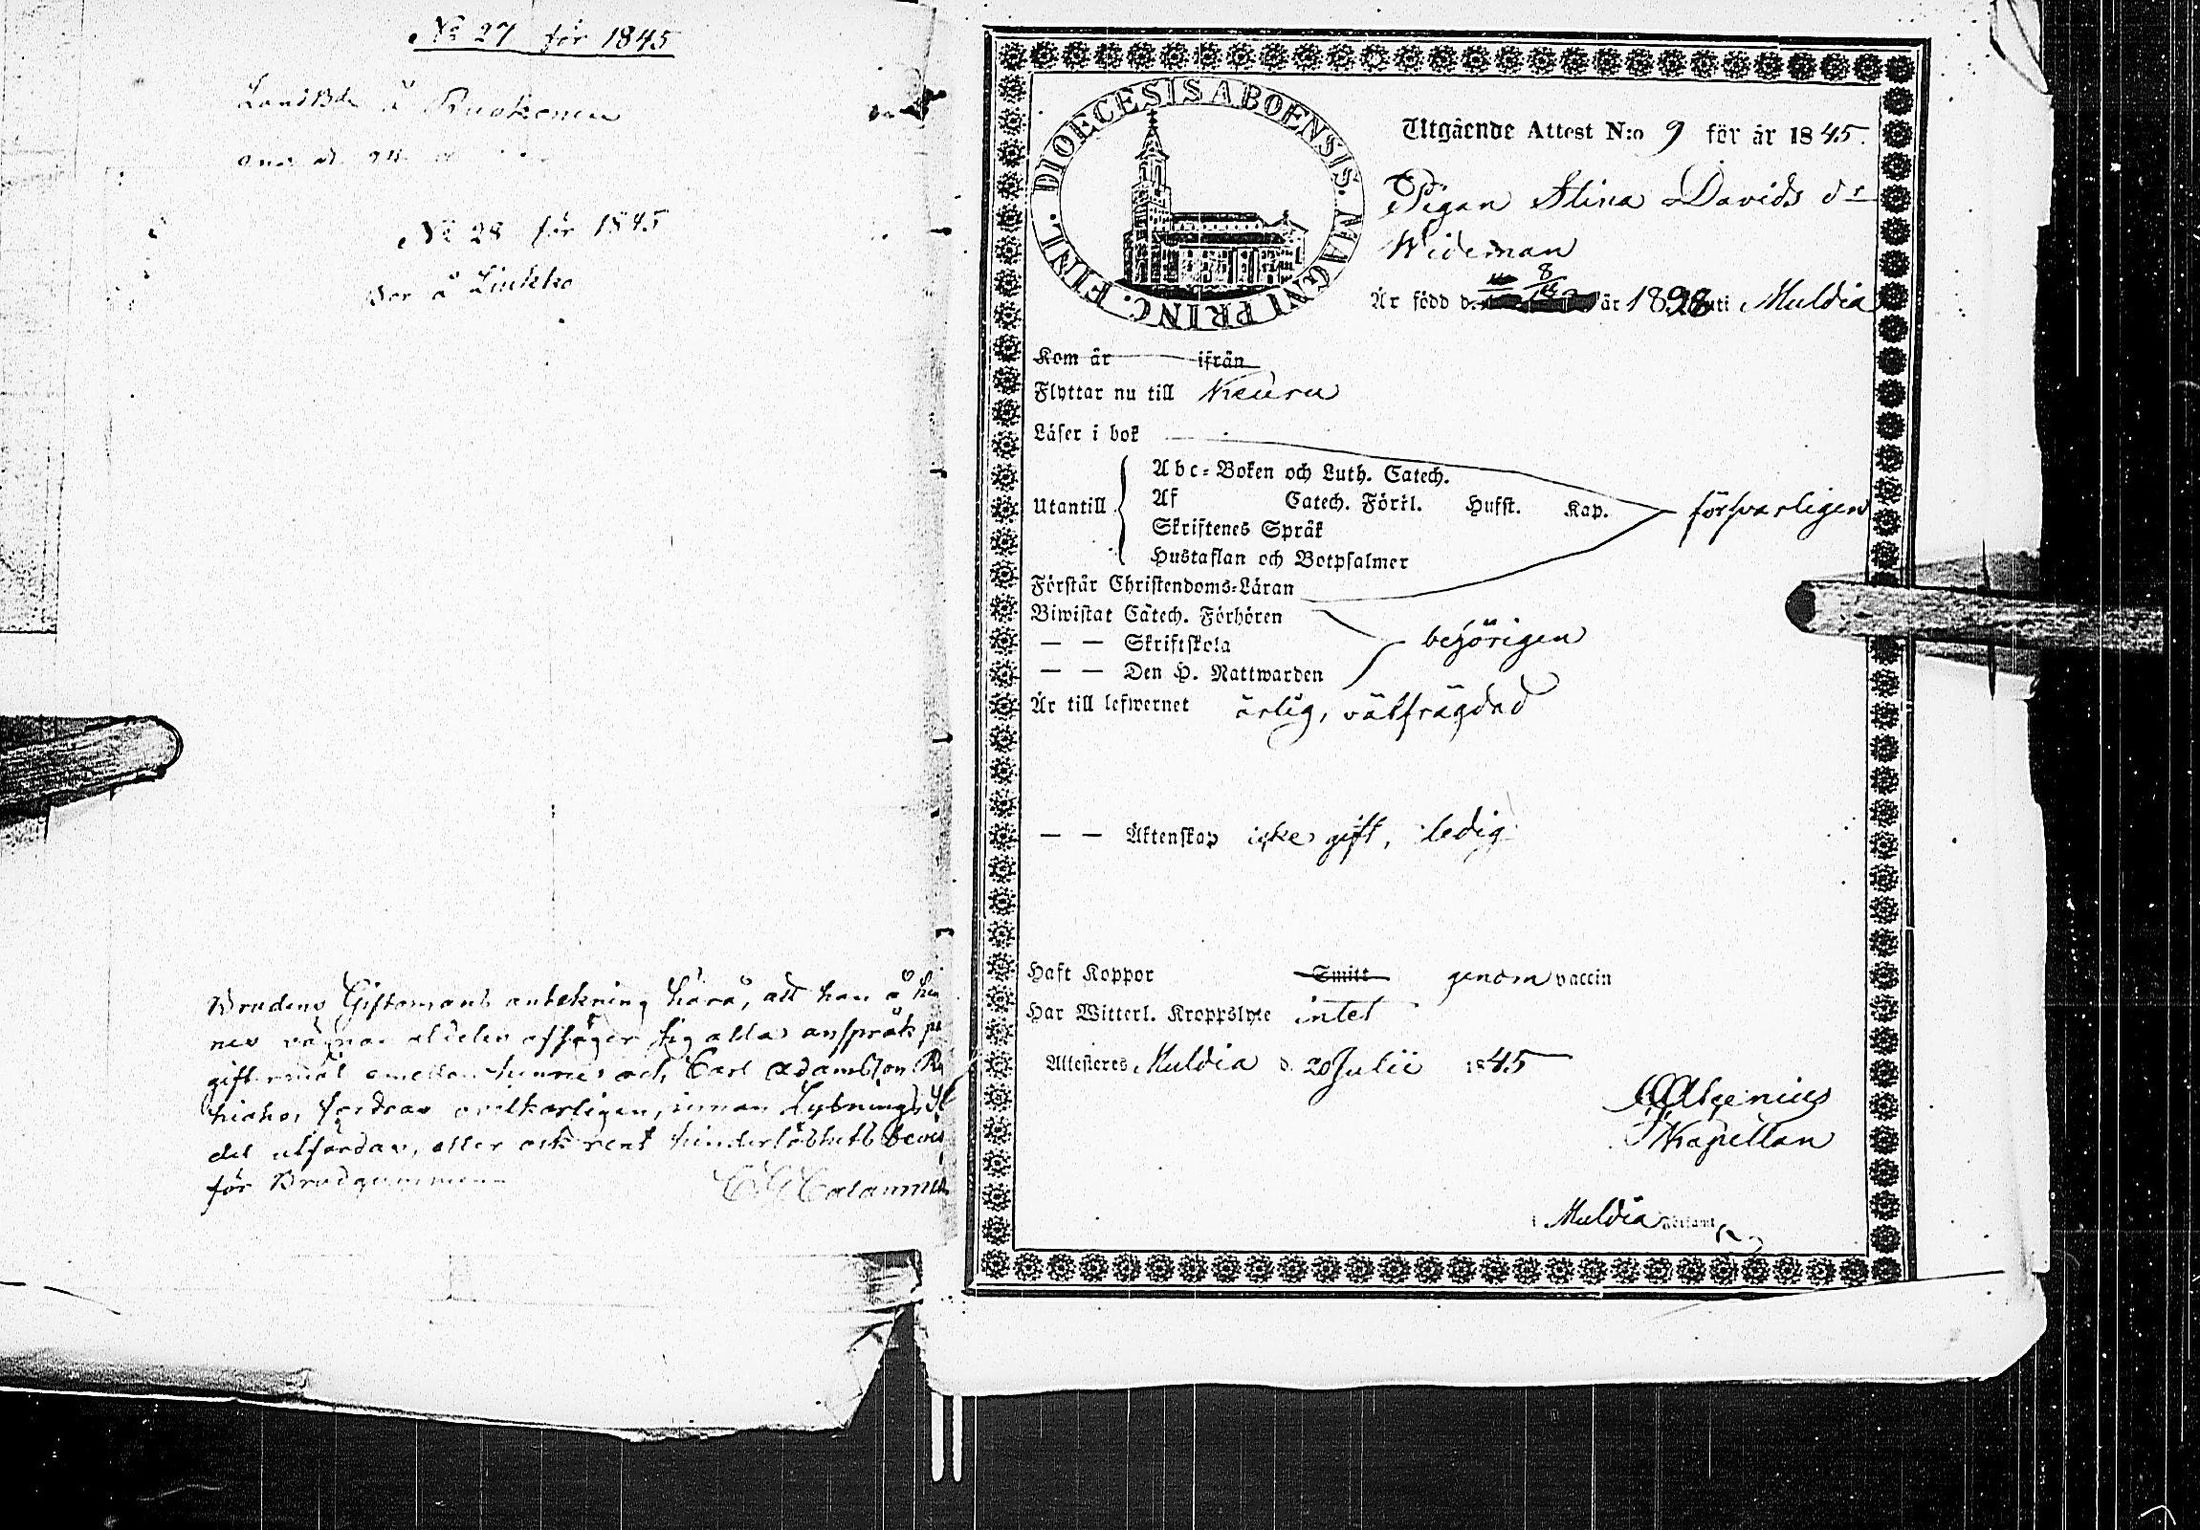 No 27 för 1845
å Ruokonen
No 28 för 1845
Bor å Liukko
Brudens Giftomans antekning härå, att han å hen
nes vägnar aldeles afsäger sig allas anspråk på
giftermål emellan henne och Carl Adamsson
fordras ovilkorligen, innan Lysnings
det utfärdas, eller ock rent hinderlöshets bevis
för Brudgummen
DIOECESIS ABOENSIS. MAGNI PRINC. FINL.
Utgående Attest N:o 9 för år 1845.
Pigan Stina Davids dr
Wideman
År född d. 8/12 år 1828 uti Muldia
Kom år ifrån
Flyttar nu till Keuru
Läser i bok
Abc-Boken och Luth. Catech.
Utantill Af Catech. Förkl. Husst. Kap. försvarligen
Skriftenes Språk
Hustaflan och Botpsalmer
Förstår Christendoms-Läran
Biwistat Catech. Förhören
— — Skriftskola behörigen
— — Den H. Nattwarden
Är till lefwernet ärlig, välfrägdad
— — Äktenskap icke gift, ledig
Haft Koppor Smitt genom vaccin
Har Witterl. Kroppslyte intet
Attesteres Muldia d. 20 Julii 1845
Algenius
Kapellan
i Muldia